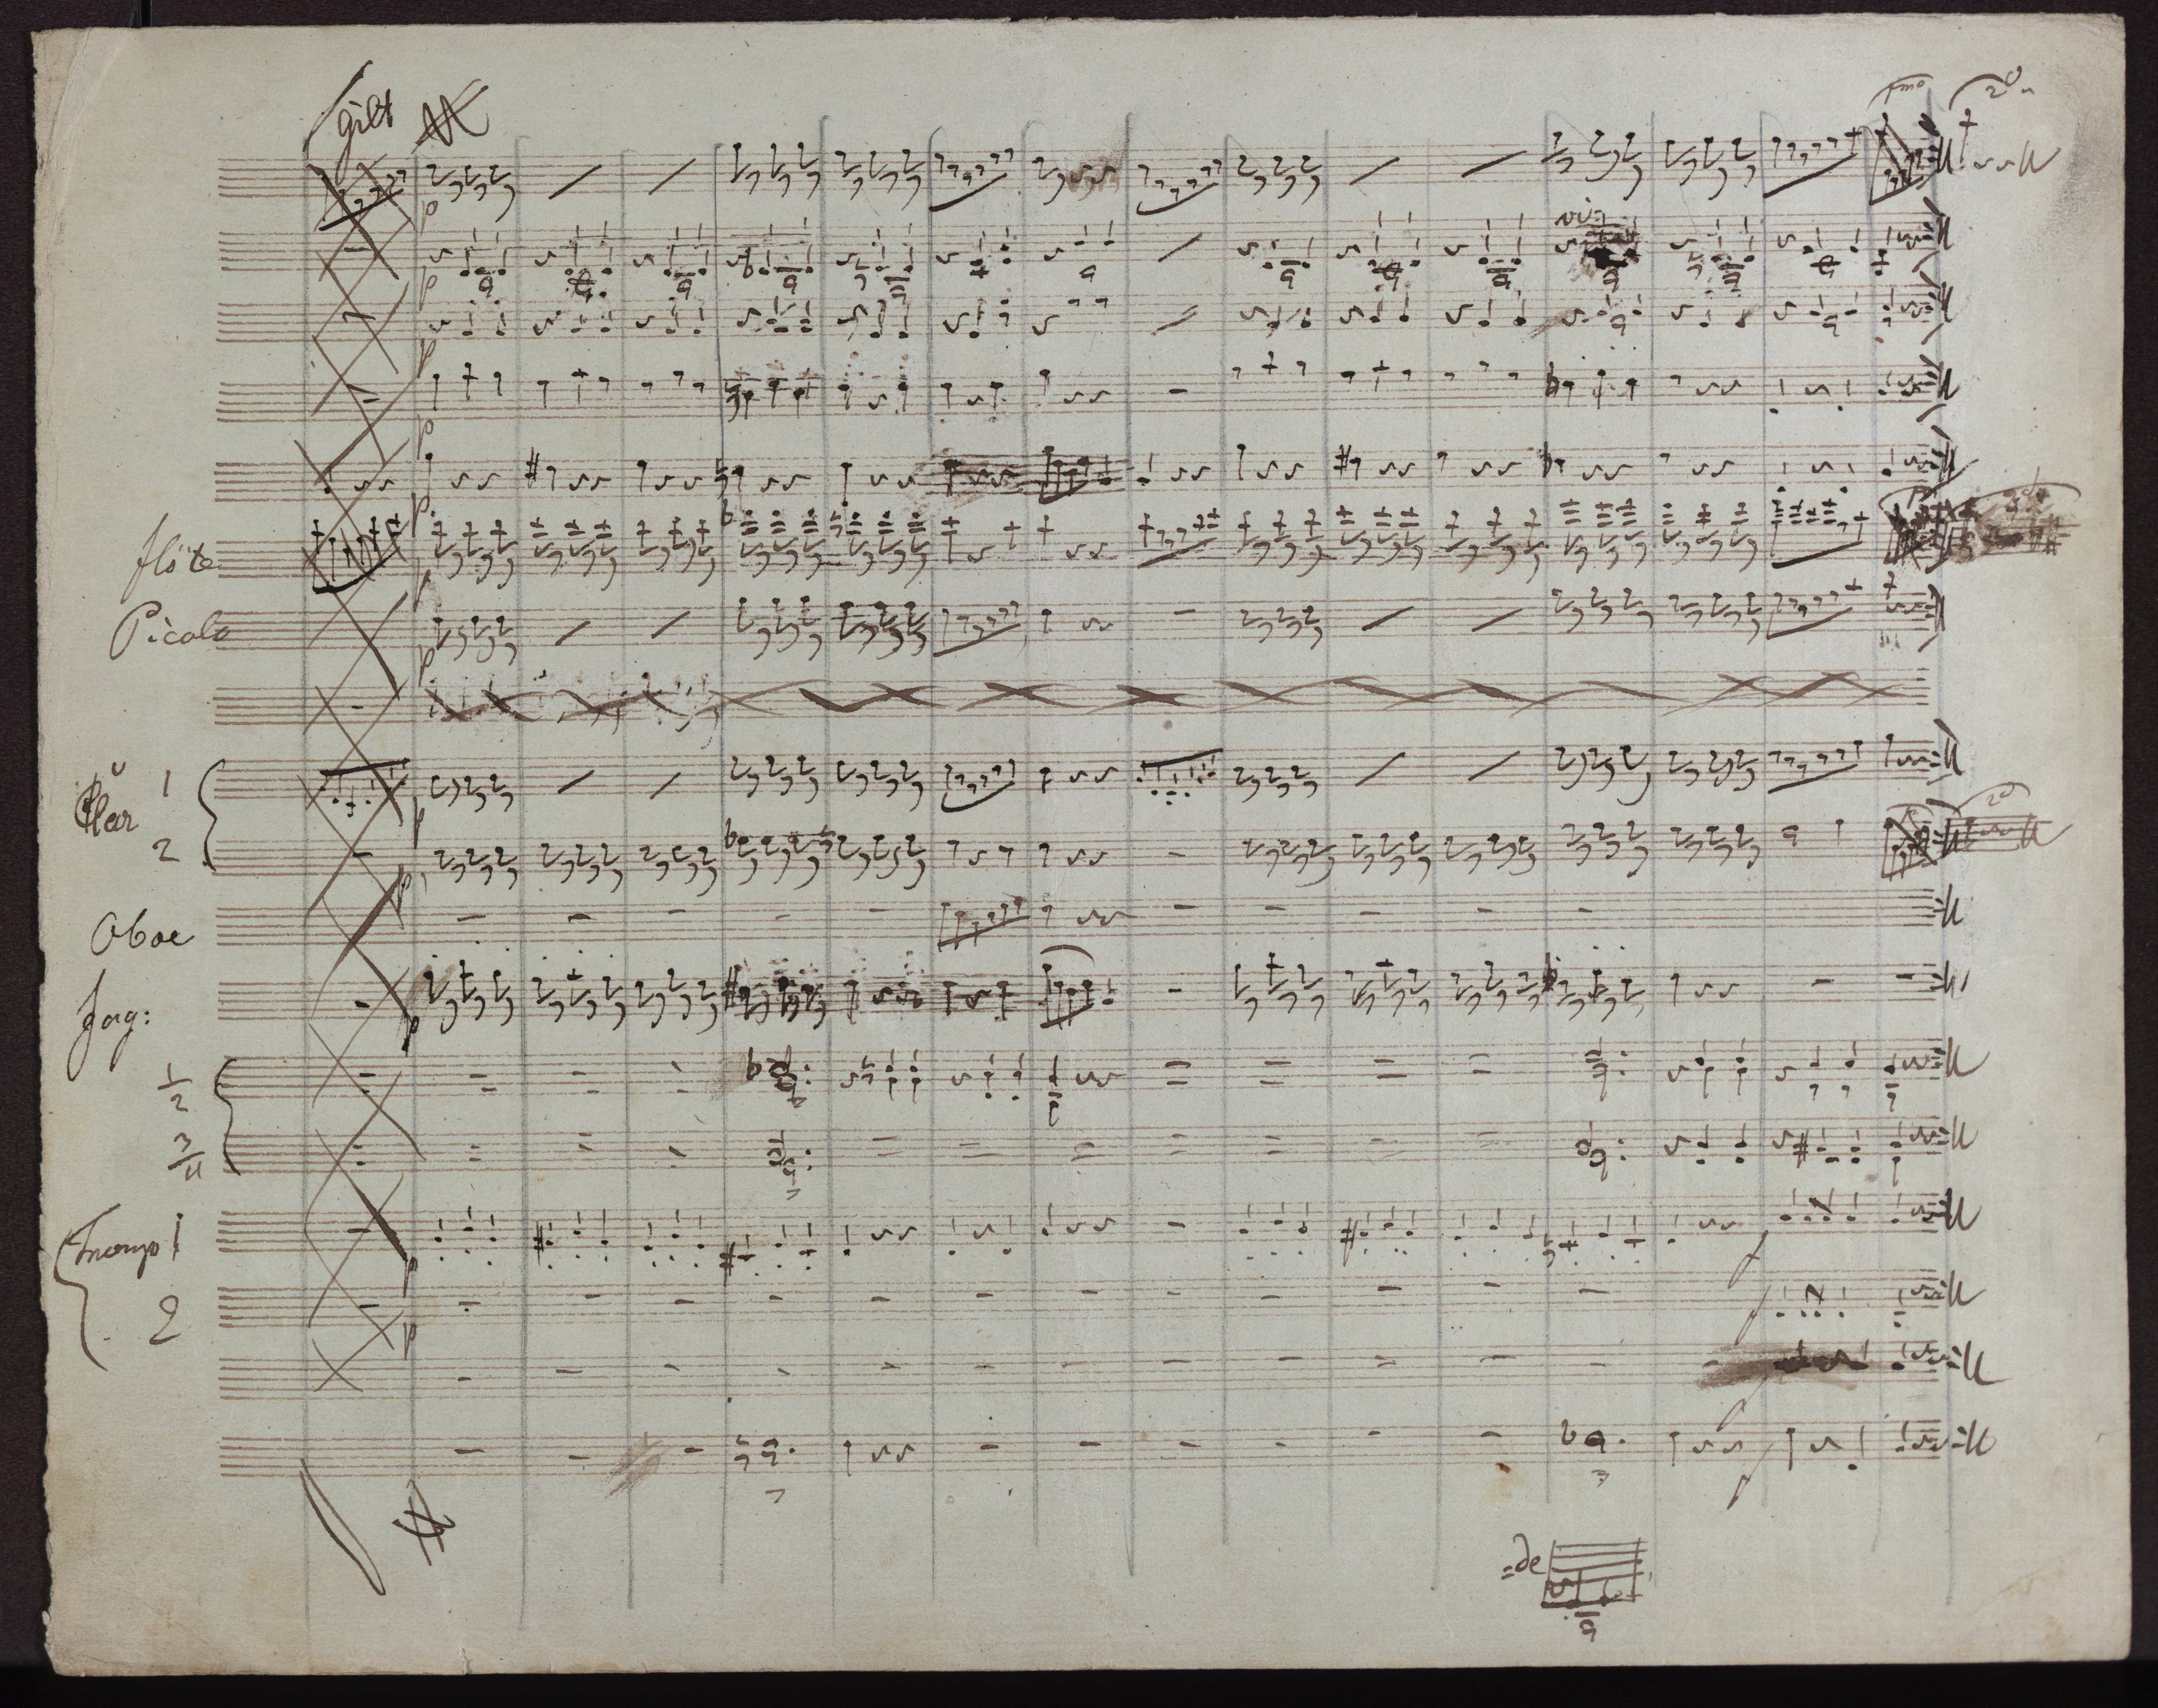 gilt
1mo 2do
vi:
flöte
Picolo
Clar 1
2
2do
Oboe
fag:
1
2
3
4
Tromp 1
2
=de